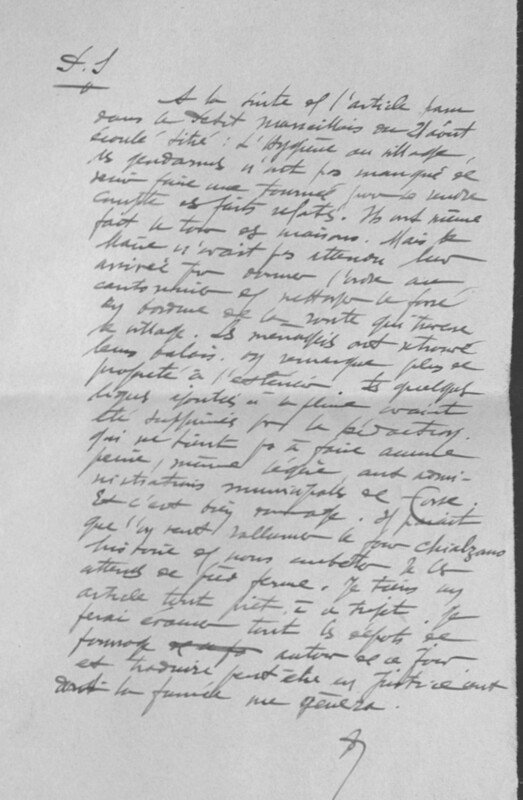 D. S
A la suite de l'article paru
dans le Petit Marseillais du 21 Août
écoulé titré : L'Hygiène au village,
les gendarmes n'ont pas manqué de
venir faire une tournée pour se rendre
compte des faits relatés. Ils ont même
fait le tour des maisons. Mais le
Maire n'avait pas attendu leur
arrivée pour donner l'ordre au
cantonnier de nettoyer le fossé
en bordure de la route qui traverse
le village. Les ménagères ont retrouvé
leurs balais. On remarque plus de
propreté à l'extérieur. Les quelques
lignes ajoutées à la plume avaient
été supprimées par la rédaction
qui ne tient pas à faire aucune
peine, même légère aux admi-
nistrations municipales de Corse.
Et c'est bien dommage. Il paraît
que l'on veut rallumer le four Chialzano
histoire de nous embêter. Je les
attends de pied ferme. Je tiens un
article tout prêt à ce sujet. Je
ferai évacuer tous les dépôts de
fromage autour de ce four
et traduire peut-être en Justice ceux
dont la fumée me gênera.